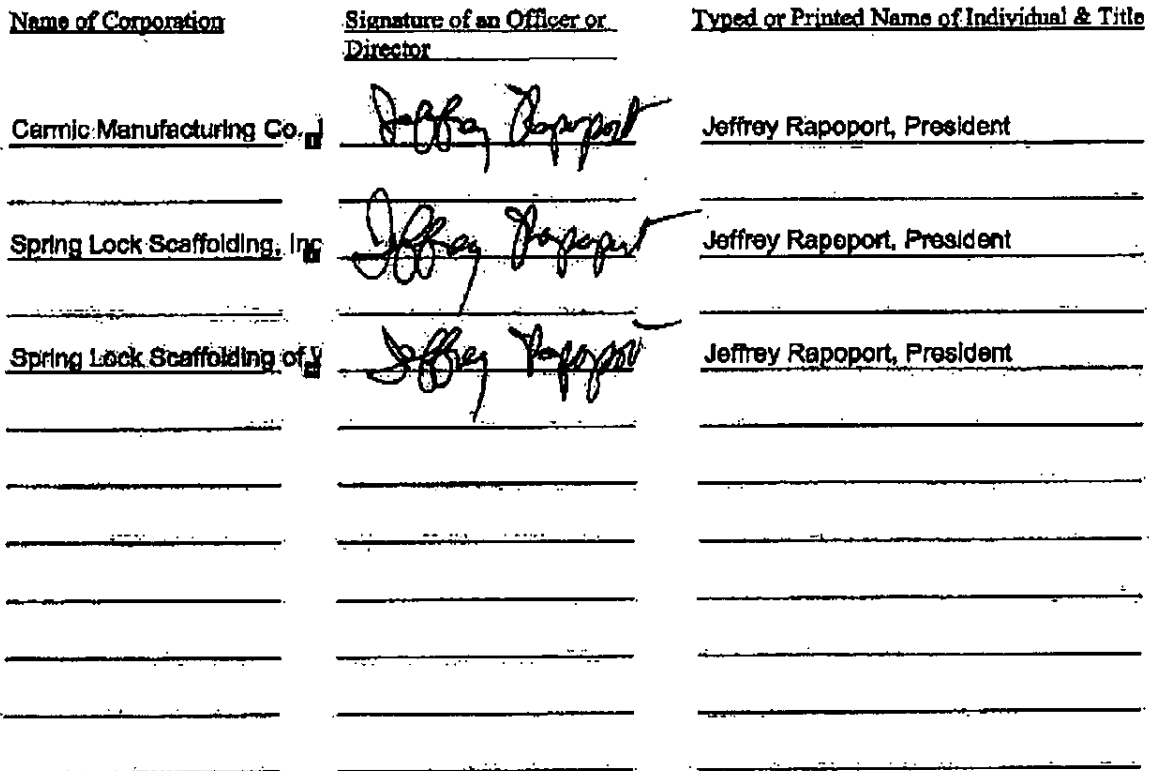 Name of Corporation Signature of an Officer or Director Typed or Printed Name of Individual & Title
Carmic Manufacturing Co. I Jeffrey Rapoport Jeffrey Rapoport, President
Spring Lock Scaffolding, Inc Jeffrey Rapoport Jeffrey Rapoport, President
Spring Lock Scaffolding of V Jeffrey Rapoport Jeffrey Rapoport, President